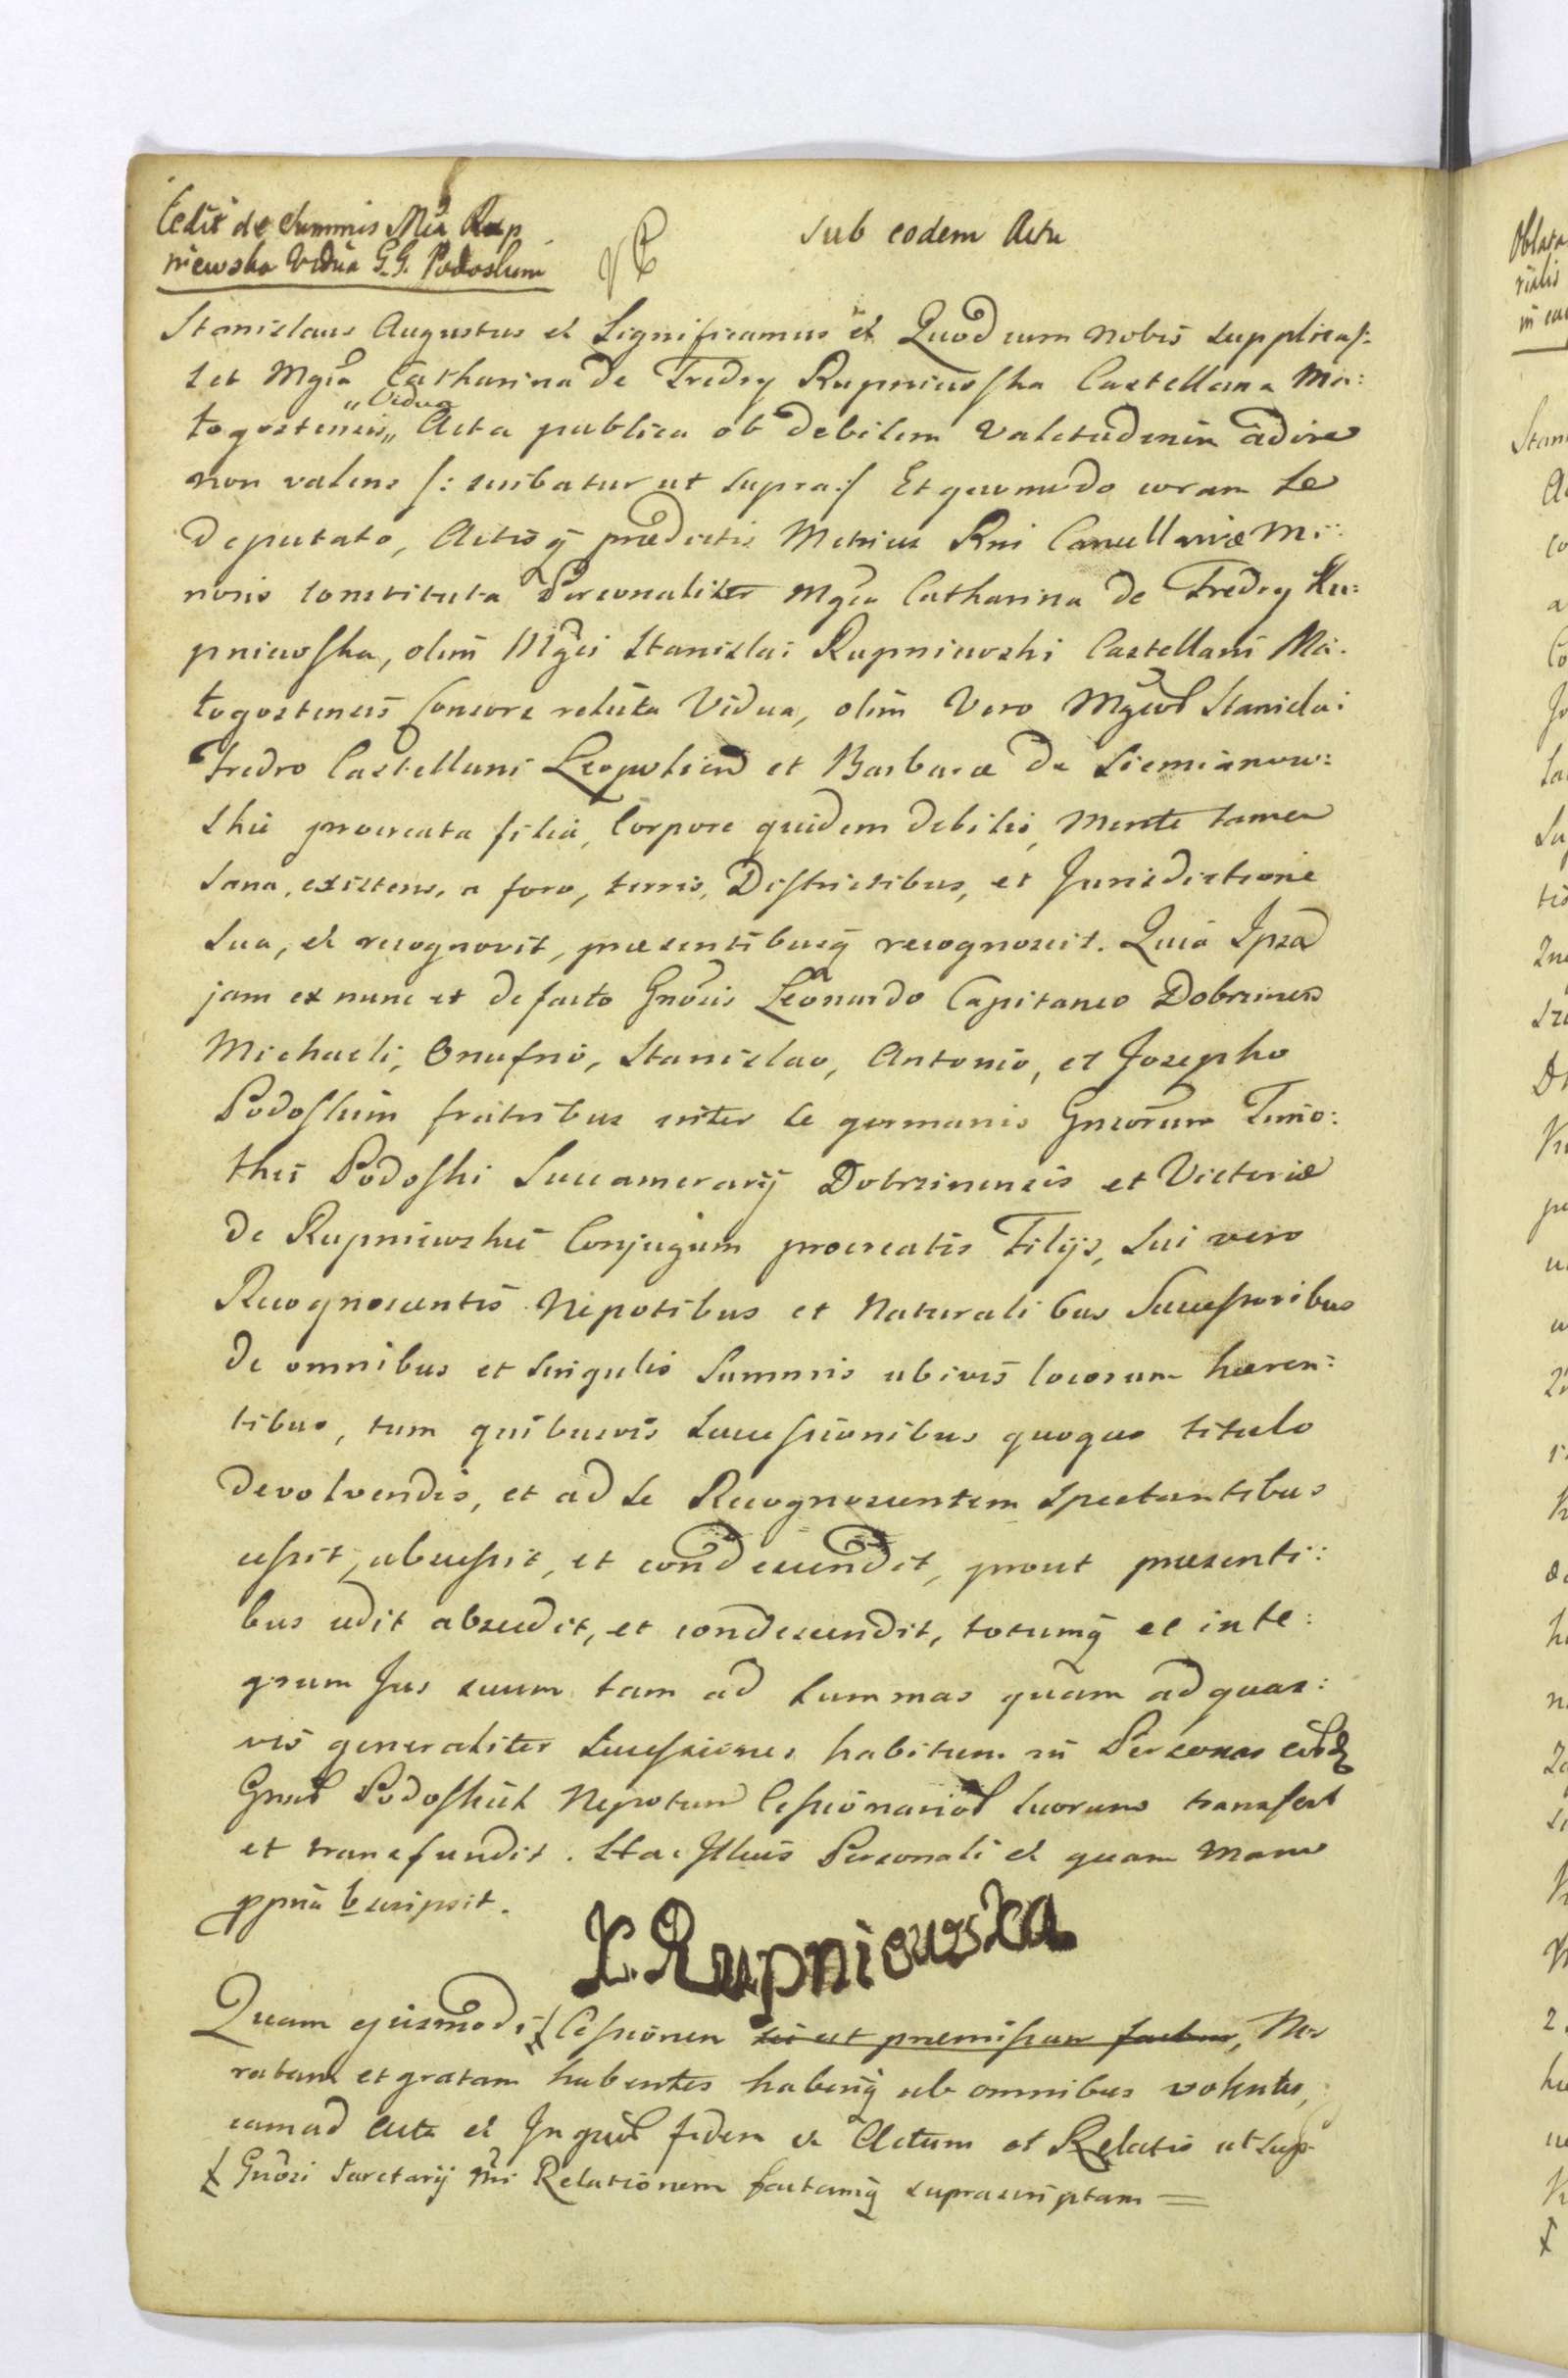 Cedit de Summis Mca Rup
niewska Vidua G.G. Podoskim
Sub eodem Actu
Stanislaus Augustus et Significamus et Quod cum nobis supplicas:
set Mgca Catharina de Fredry Rupniewska Castellana Ma:
"Vidua
łogostensis,, Acta publica ob debilem Valetudinem adire
non valens /: scribatur ut supra :/ Et quomodo coram se
deputato, Actisq praedictis Metrices Rni Cancellariae Mi:
noris constituta Personaliter Mgca Catharina de Fredry Ru:
pniewska, olim Mgci Stanislai Rupniewski Castellani Ma:
łogostensis Consors relicta Vidua, olim Vero Mgcor Stanislai
Fredro Castellani Leopolien et Barbarae de Siemianow:
skie procreata filia, Corpore quidem debilis, Mente tamen
sana, existens, a foro, terris, Districtibus, et Jurisdictione
sua, et recognovit, praesentibusq recognoscit. Quia Ipsa
jam ex nunc et de facto Gnosis Leonardo Capitaneo Dobrzinen
Michaeli, Onufrio, Stanislao, Antonio, et Josepho
Podoskim fratribus inter se germanis Gnsorum Timo:
thei Podoski Succamerarij Dobrzinensis et Victoriae
de Rupniewskie Conjugum procreatis Filijs, sui vero
Recognoscentis Nepotibus et Naturalibus Successoribus
de omnibus et singulis Summis ubivis locorum haeren:
tibus, tum quibusvis Successionibus quoquo titulo
devolvendis, et ad se Recognoscentem spectantibus
cessit, abscessit, et condescendit, prout praesenti:
bus cedit abscedit, et condescendit, totumq et inte:
grum Jus suum tam ad summas quam ad quas:
vis generaliter Successiones habitum in Personas
Podoskich Nepotum Cessionarior suorum transfert
et transfundit. Stae Illius Personali et quam Manu
ppria scripsit.
K. Rupniewska
Quam ejusmodi Cessionem sic ut praemissum factam, Nos
ratam et gratam habentes haberiq ab omnibus volentes,
eam ad Acta et In quor fidem et Actum et Relatio ut sup
Gnosi Secretarij Nri Relationem factamq suprascriptam =